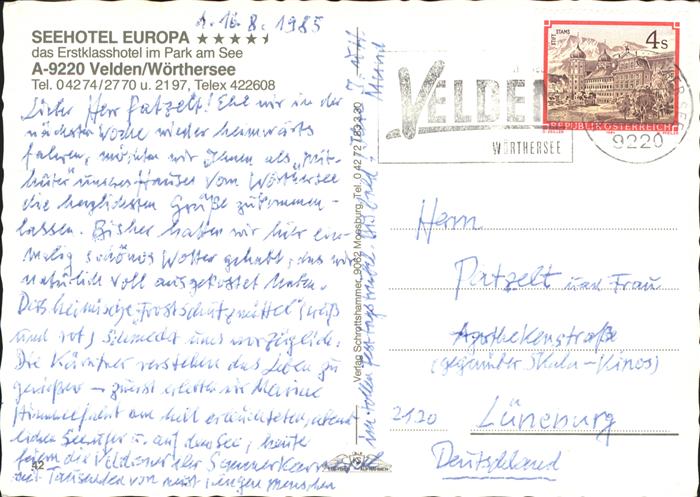 d. 16.8.1985
SEEHOTEL EUROPA ★★★★★
das Erstklasshotel im Park am See
A-9220 Velden/Wörthersee
Tel. 0 42 74 / 27 70 u. 21 97, Telex 422608
Lieber Herr Patzelt! Ehe wir in der
nächsten Woche wieder heimwärts
fahren, möchten wir Ihnen als "Mit-
hüter" unseres Hauses vom Wörthersee
die herzlichsten Grüße zukommen-
lassen. Bisher haben wir hier ein-
malig schönes Wetter gehabt, das wir
natürlich voll ausgekostet haben.
Das heimische "Frostschutzmittel" (weiß
und rot) schmeckt uns vorzüglich.
Die Kärntner verstehen das Leben zu
genießen – zuerst erlebten wir Mariä
Himmelfahrt am hell erleuchteten, abend
lichen Seeufer u. auf dem See, heute
feiern die Veldener
mit Tausenden von Menschen
im tollen
Verlag Schrottshammer, 9062 Moosburg, Tel. 0 42 72 / 83 2 80
42
VELDEN
WÖRTHERSEE
9220
STIFT STAMS
4 S
REPUBLIK ÖSTERREICH
Herrn
Patzelt und Frau
Apothekenstraße
(gegenüber Skala-Kinos)
2120 Lüneburg
Deutschland